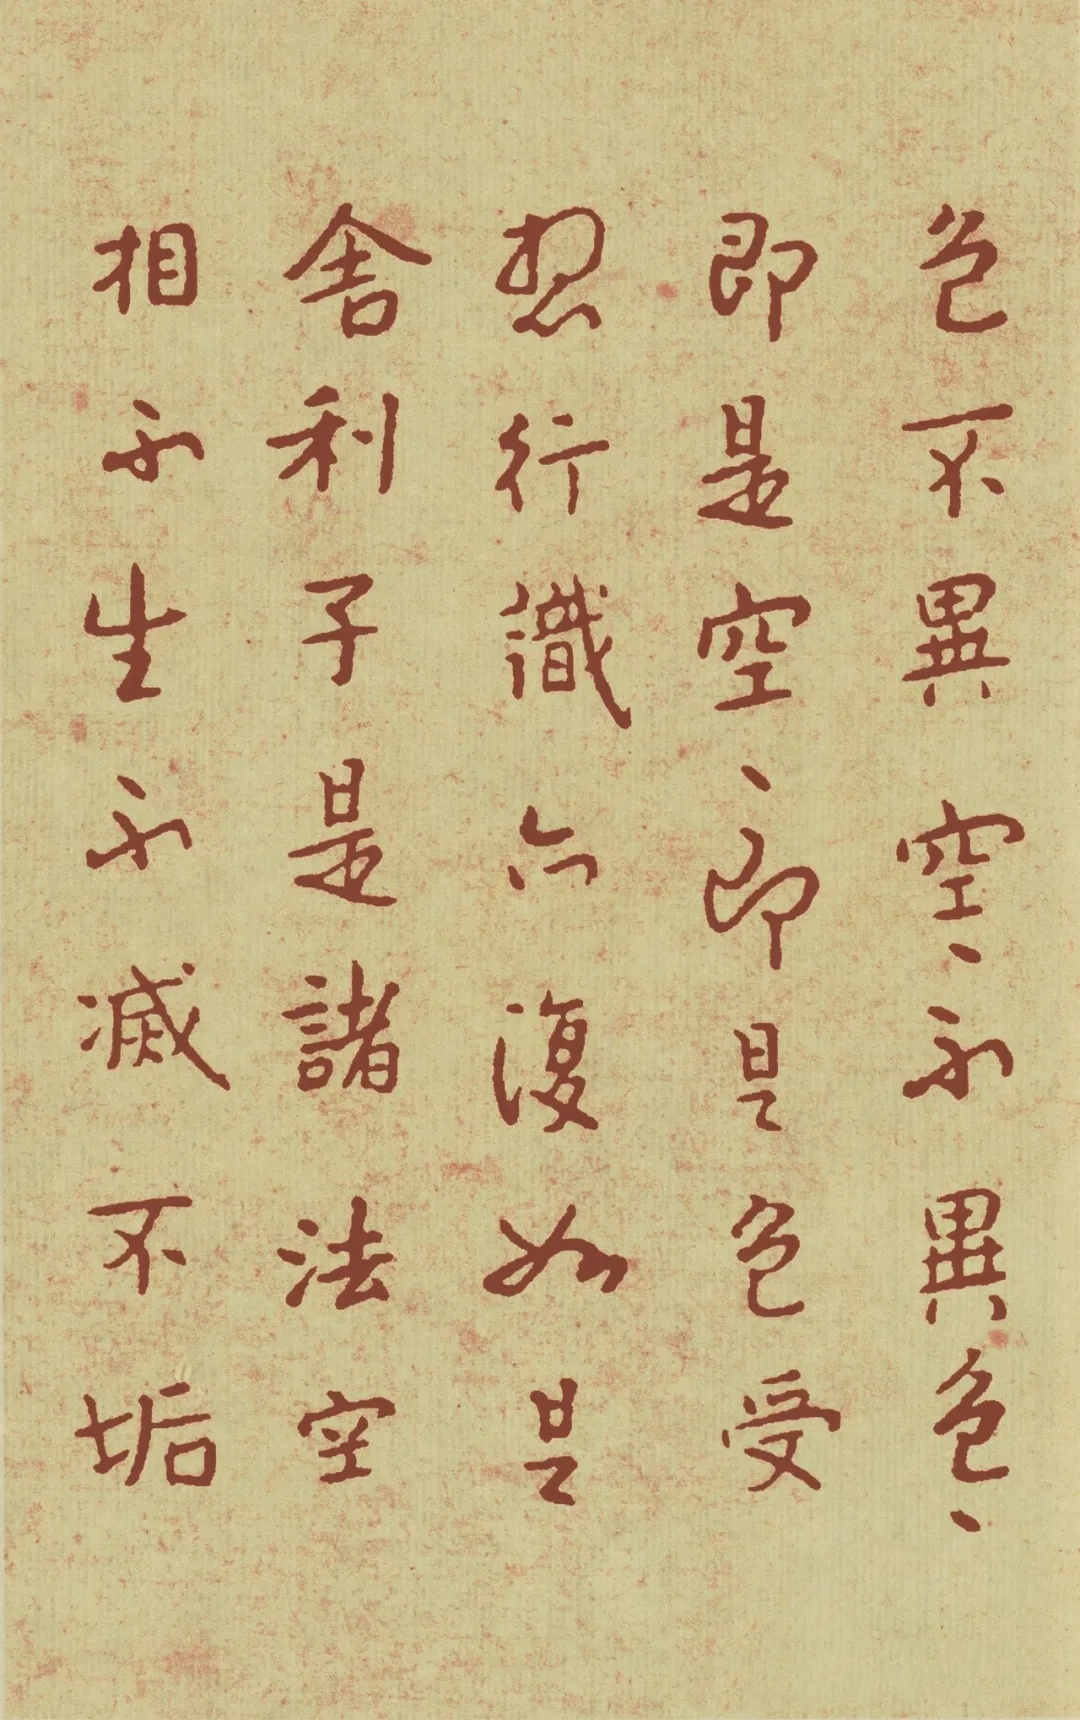 色不異空、不異色、
即是空、即是色受
想行識亦復如是
舍利子是諸法空
相不生不滅不垢